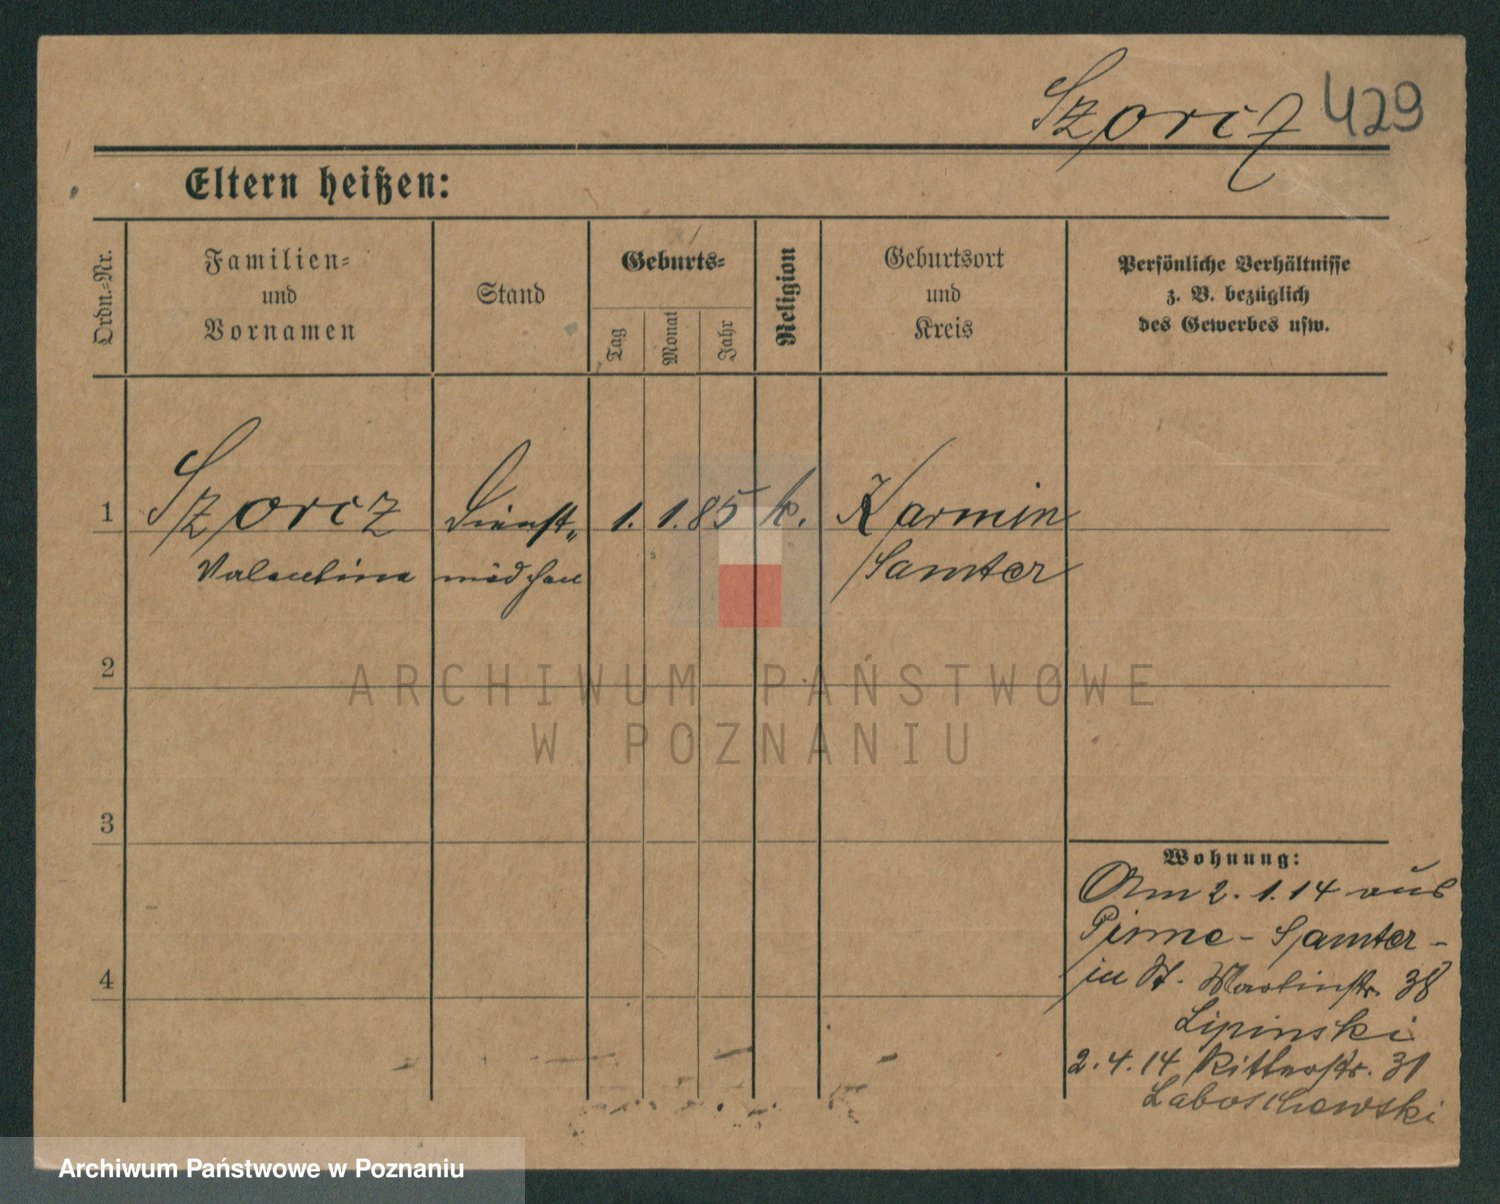 Szorcz 429
Eltern heißen:
Ordn.-Nr.
Familien-
und
Vornamen
Stand
Geburts-
Tag
Monat
Jahr
Religion
Geburtsort
und
Kreis
Persönliche Verhältnisse
z. B. bezüglich
des Gewerbes usw.
1 Szorcz Dienst- 1. 1. 85 k. Karmin
Valentina mädchen Samter
2
3
4
Wohnung:
Am 2. 1. 14 aus
Peirne - Samter -
in St. Martinstr. 38
Lipinski
2. 4. 14 Ritterstr. 31
Laboschewski
ARCHIWUM PAŃSTWOWE
W POZNANIU
Archiwum Państwowe w Poznaniu